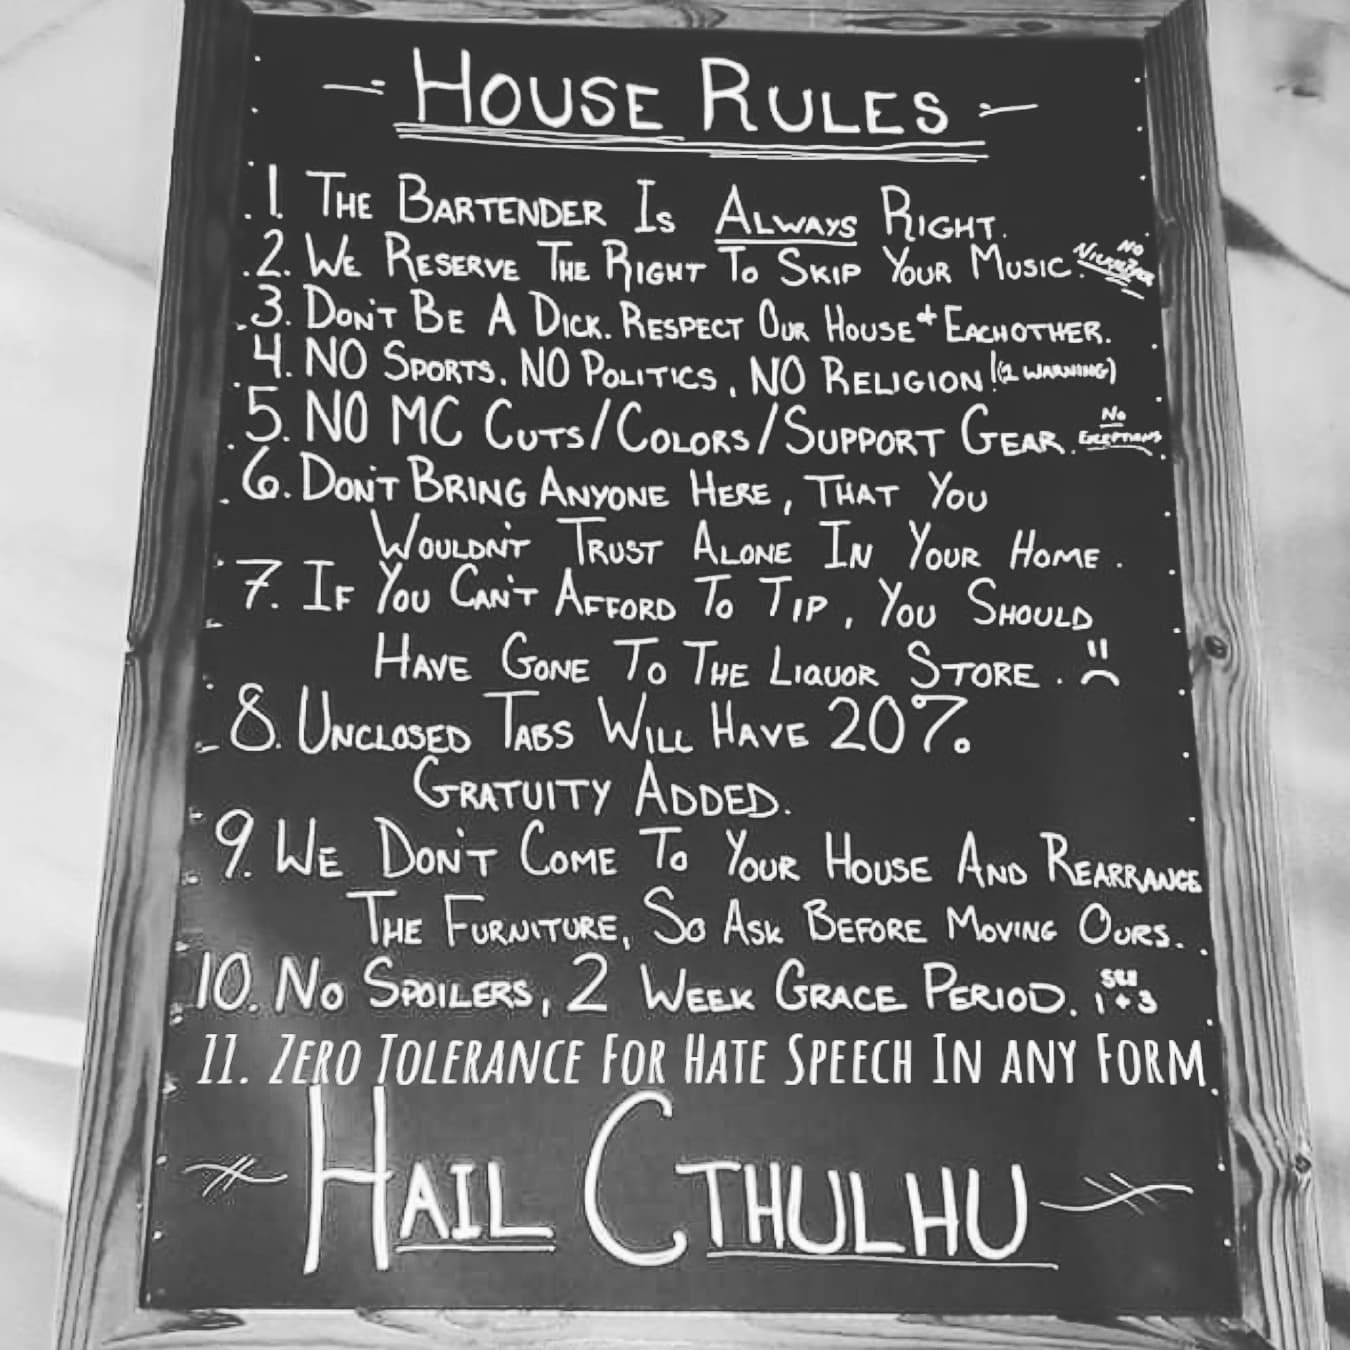 House Rules
1. The Bartender Is Always Right.
2. We Reserve The Right To Skip Your Music. No Nickelback
3. Don't Be A Dick. Respect Our House + Eachother.
4. NO Sports. NO Politics, NO Religion! (1 warning)
5. NO MC Cuts/Colors/Support Gear. No Exceptions
6. Don't Bring Anyone Here, That You
Wouldn't Trust Alone In Your Home.
7. If You Can't Afford To Tip, You Should
Have Gone To The Liquor Store. :(
8. Unclosed Tabs Will Have 20%
Gratuity Added.
9. We Don't Come To Your House And Rearrange
The Furniture, So Ask Before Moving Ours.
10. No Spoilers, 2 Week Grace Period. see 1 + 3
11. Zero Tolerance For Hate Speech In any Form
Hail Cthulhu